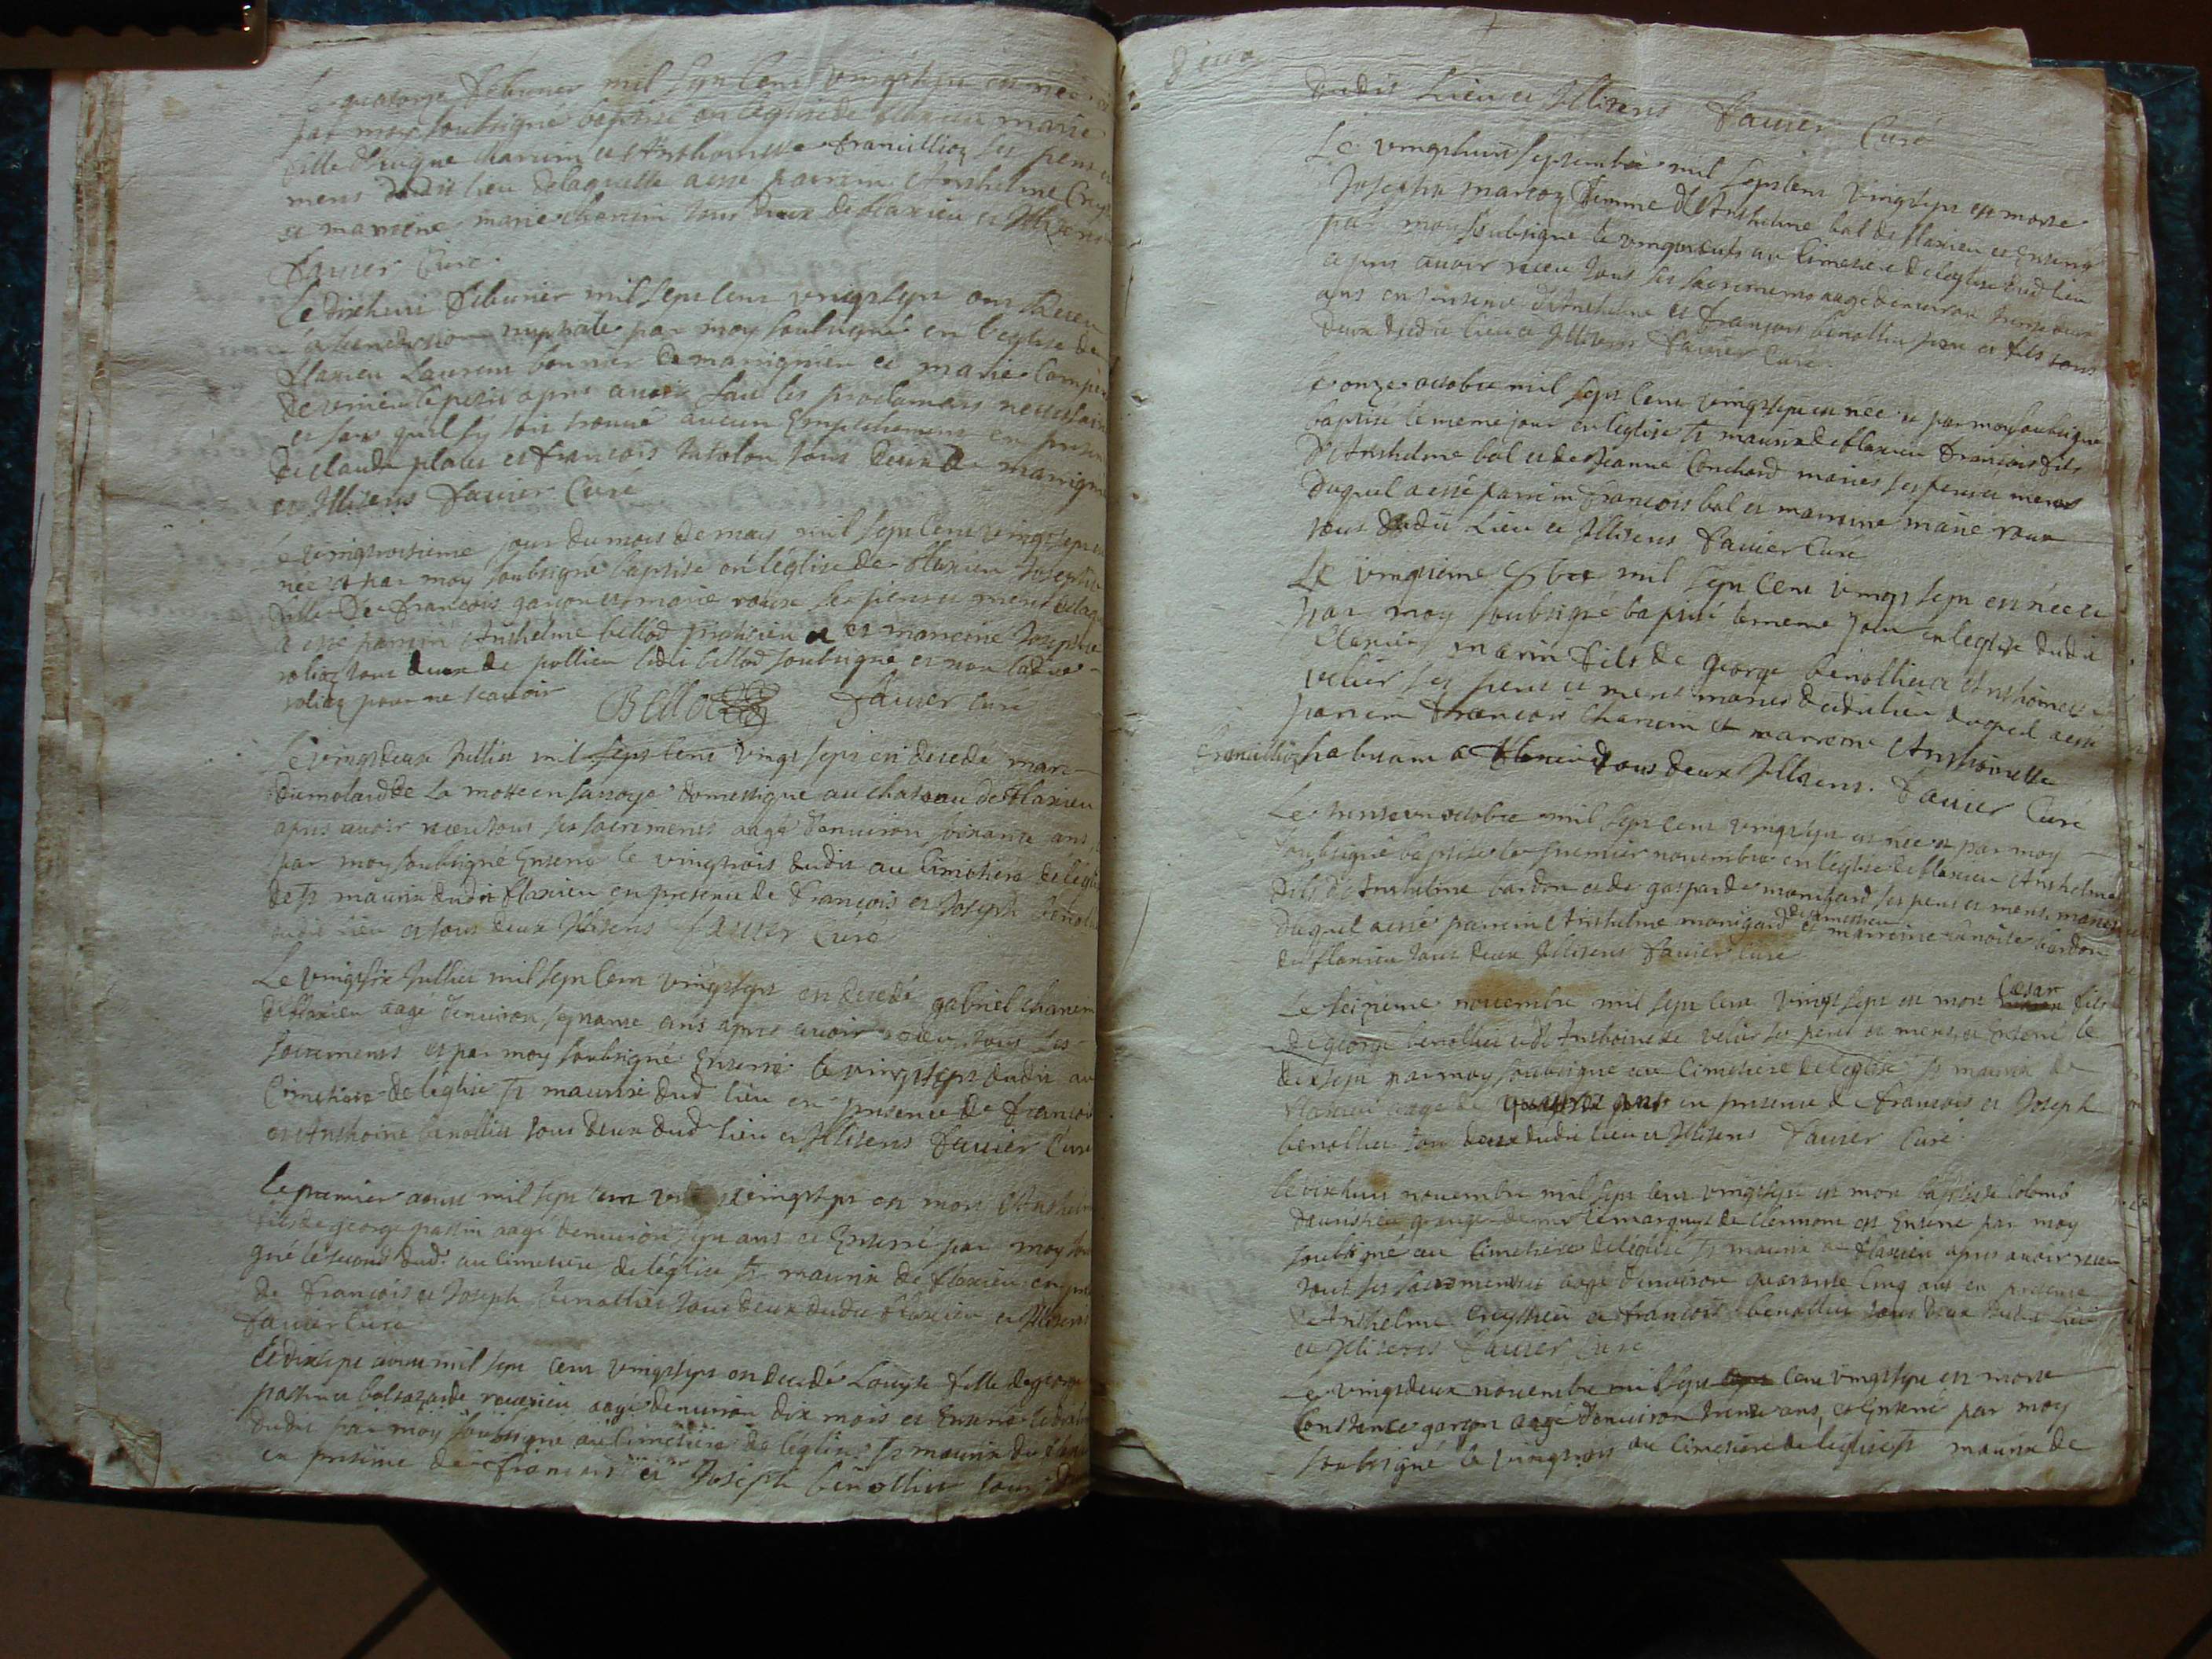 quatorze febvrier mil sept cent vingtsept est née et
par moy soubsigné baptisé en léglise de flaxieu marie
fille d'huigue Charcim et Anthoinette francillioz ses peres et
meres dudit lieu delaquelle a esté parrain Anthelme
et marreine marie charcim tous deux de flaxieu et Illiterés
favier Curé
Le dixhuit febvrier mil sept cent vingtsept ont Receu
la benediction nuptiale par moy soubsigné en l'eglise de
flaxieu Laurent bonnier de marrignieu et marie
apres avoir fait les proclamaons necessaires
et sans quil sy soit trouvé aucun Empechement en presence
de claude et francois tous deux de marrignieu
et Illiterés favier Curé
Le vingtroisieme jour du mois de mars mil sept cent vingt sept est
née et par moy soubsigné baptisé en l'église de flaxieu Josephte
fille De francois garçon et marie roux ses peres et meres delaquelle
a esté parrin Anthelme bellod praticien et marreine Josephte
roliaz tous deux de pollieu ledit bellod soubsigné et non ladite
roliaz pour ne scavoir Bellod favier curé
Le vingtdeux Jullier mil sept cens vingt sept est decedé
dumolard de La motte en savoye domestique au chateau de flaxieu
apres avoir receu tous ses sacremens aagé d'environ soixante ans
par moy soubsigné Enterré le vingtrois dudit au Cimetiere de l'église
de St maurix dudit flaxieu en presence de francois et Joseph benollier
dudit lieu et tous deux Illiterés favier Curé
Le vingtsix Jullier mil sept cent vingtsept est decedé gabriel charcim
de flaxieu aagé d'environ septante ans apres avoir receu tous ses
sacremens et par moy soubsigné Enterré le vingtsept dudit au
Cimetiere de léglise St maurix dud lieu en presence de francois
et Anthoine benollier tous deux dud lieu et Illiterés favier Curé
Le premier aoust mil sept cent vingtsept est mort Anthelme
fils de george passin aagé denviron sept ans et Enterré par moy soubsi
gné le second dud. au cimetiere de léglise St maurix de flaxieu en presence
de francois et Joseph benollier tous deux dudit flaxieu et Illiterés
favier Curé
Le dixsept aoust mil sept cent vingtsept est decedé Louyse fille de george
passin et balthazarde aagé denviron dix mois et Enterré le dixhuit
dudit par moy soubsigné au cimetiere de léglise St maurix de flaxieu
en presence de francois et Joseph benollier tous deux
dudit Lieu et Illiterés favier Curé
Le vingthuit septembre mil sept cent vingtsept est morte
Josepha marcoz femme d'Anthelme bal de flaxieu et Enterré
par moy soubsigné le vingtneufs au Cimetiere de l'eglise dud lieu
apres avoir receu tous ses sacremens aagé denviron trente deux
ans en presence d'Anthelme et francois benollier pere et fils tous
deux dudit lieu et Illiterés favier Curé
Le onze octobre mil sept cent vingtsept est née et par moy soubsigné
baptisé le meme jour en l'eglise St maurix de flaxieu francois fils
D'Anthelme bal et de Jeanne Conchard mariés ses peres et meres
duquel a esté parrein francois bal et marreine marie roux
tous dudit Lieu et Illiterés favier Curé
Le vingtieme 8bre mil sept cent vingt sept est née et
par moy soubsigné baptisé le meme jour en léglise dudit
flaxieu marin fils de george benollier et Anthoinette
velier ses peres et meres mariés dudit lieu duquel a esté
parrein francois charcim et marreine Anthoinette
francillioz habitans a flaxieu tous deux Illiterés. favier Curé
Le trente un octobre mil sept cent vingtsept est née et par moy
soubsigné baptisé le premier novembre en l'eglise de flaxieu Anthelme
fils de Anthelme bardon et de gasparde monichard ses peres et meres mariés
duquel a esté parrein Anthelme monigard et marreine benoite bardon
de flaxieu tous deux Illiterés favier Curé
Le seizieme novembre mil sept cent vingt sept est mort Cæsar fils
de george benollier et d'Anthoinette velier ses peres et meres et Enterré le
dixsept par moy soubsigné au Cimetiere de l'eglise St maurix de
flaxieu aagé de quattre ans en presence de francois et Joseph
benollier tous deux dudit lieu et Illiterés favier Curé.
Le dixhuit novembre mil sept cent vingtsept est mort baptiste Colomb
granger de mr le marquys de Clermont et Enterré par moy
soubsigné au Cimetiere de léglise St maurix de flaxieu apres avoir receu
tous ses sacremens aagé d'environ quarante cinq ans en presence
de Anthelme et francois benollier tous deux dudit lieu
et Illiterés favier Curé
Le vingtdeux novembre mil sept cent vingtsept est morte
Constance garçon aagé d'environ trente ans, et Enterré par moy
soubsigné le vingtrois au Cimetiere de l'eglise St maurix de